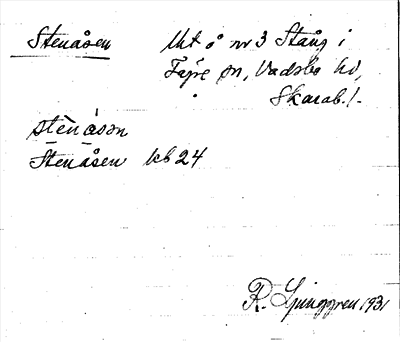 Stenåsen Utt å nr 3 Stång i
Fägre sn, Vadsbo hd,
Skarab. l.
stènåsǝn
Stenåsen kb 24
R. Ljunggren 1931